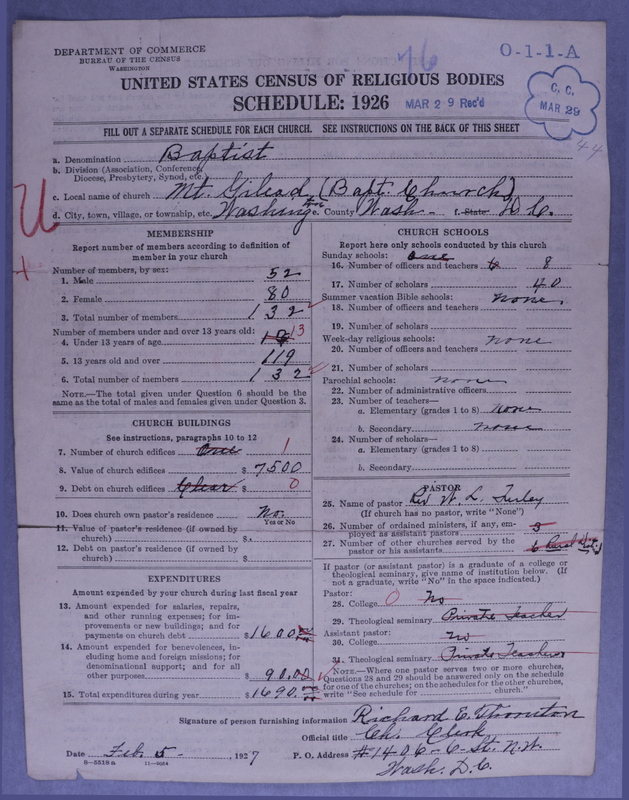 DEPARTMENT OF COMMERCE
BUREAU OF THE CENSUS
WASHINGTON
76
0-1-1-A
UNITED STATES CENSUS OF RELIGIOUS BODIES
SCHEDULE: 1926
MAR 29 Rec'd
C. C.
MAR 29
44
FILL OUT A SEPARATE SCHEDULE FOR EACH CHURCH. SEE INSTRUCTIONS ON THE BACK OF THIS SHEET
a. Denomination Baptist
b. Division (Association, Conference, Diocese, Presbytery, Synod, etc.)
c. Local name of church Mt. Gilead (Bapt. Church)
d. City, town, village, or township, etc. Washington e. County Wash- f. State D.C.
MEMBERSHIP
Report number of members according to definition of
member in your church
Number of members, by sex:
1. Male 52
2. Female 80
3. Total number of members 132
Number of members under and over 13 years old:
4. Under 13 years of age 13
5. 13 years old and over 119
6. Total number of members 132
NOTE.—The total given under Question 6 should be
same as the total of males and females given under Question 3.
CHURCH BUILDINGS
See instructions, paragraphs 10 to 12
7. Number of church edifices One 1
8. Value of church edifices $7500
9. Debt on church edifices Clear $ 0
10. Does church own pastor's residence? No.
Yes or No
11. Value of pastor's residence (if owned by
church) $
12. Debt on pastor's residence (if owned by
church) $
EXPENDITURES
Amount expended by your church during last fiscal year
13. Amount expended for salaries, repairs,
and other running expenses; for im-
provements or new buildings; and for
payments on church debt $1600
14. Amount expended for benevolences, in-
cluding home and foreign missions; for
denominational support; and for all
other purposes $ 90.00
15. Total expenditures during year $1690
CHURCH SCHOOLS
Report here only schools conducted by this church
Sunday schools: one
16. Number of officers and teachers 8
17. Number of scholars 40
Summer vacation Bible schools: none
18. Number of officers and teachers
19. Number of scholars
Week-day religious schools: none
20. Number of officers and teachers
21. Number of scholars
Parochial schools: none
22. Number of administrative officers
23. Number of teachers—
a. Elementary (grades 1 to 8) none
b. Secondary none
24. Number of scholars—
a. Elementary (grades 1 to 8)
b. Secondary
PASTOR
25. Name of pastor Rev W. L. Turley
(If church has no pastor, write "None")
26. Number of ordained ministers, if any, em-
ployed as assistant pastors 3
27. Number of other churches served by the
pastor or his assistants
If pastor (or assistant pastor) is a graduate of a college or
theological seminary, give name of institution below. (If
not a graduate, write "No" in the space indicated.)
Pastor:
28. College 0 No
29. Theological seminary Private Teacher
Assistant pastor:
30. College no
31. Theological seminary Private Teacher
NOTE.—Where one pastor serves two or more churches,
Questions 28 and 29 should be answered only on the schedule
for one of the churches; on the schedules for the other churches,
write "See schedule for church."
Signature of person furnishing information Richard E. Thornton
Official title Ch. Clerk
Date Feb. 5-, 1927 P. O. Address #1406-6-St. N.W.
Wash. D.C.
8-5518a 11-9034